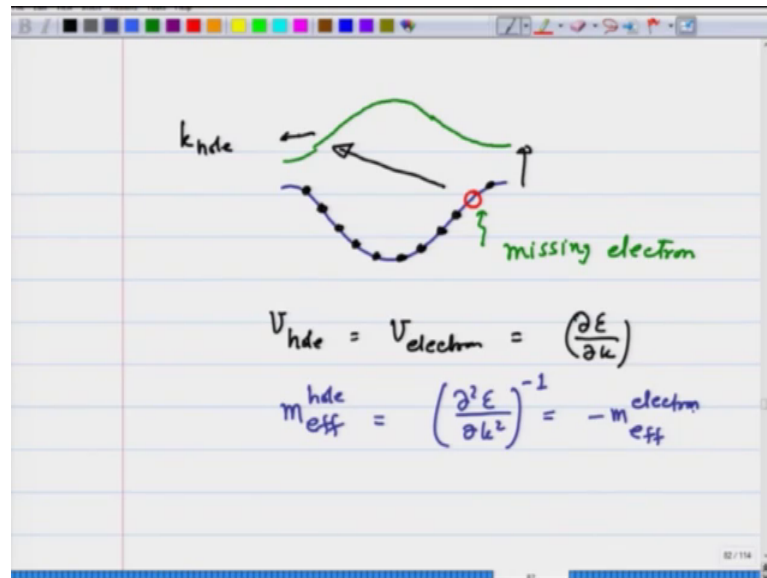 B I
k hole
missing electron
V hole = V electron = (∂ε/∂k)
m eff hole = (∂²ε/∂k²)⁻¹ = -m eff electron
82 / 114